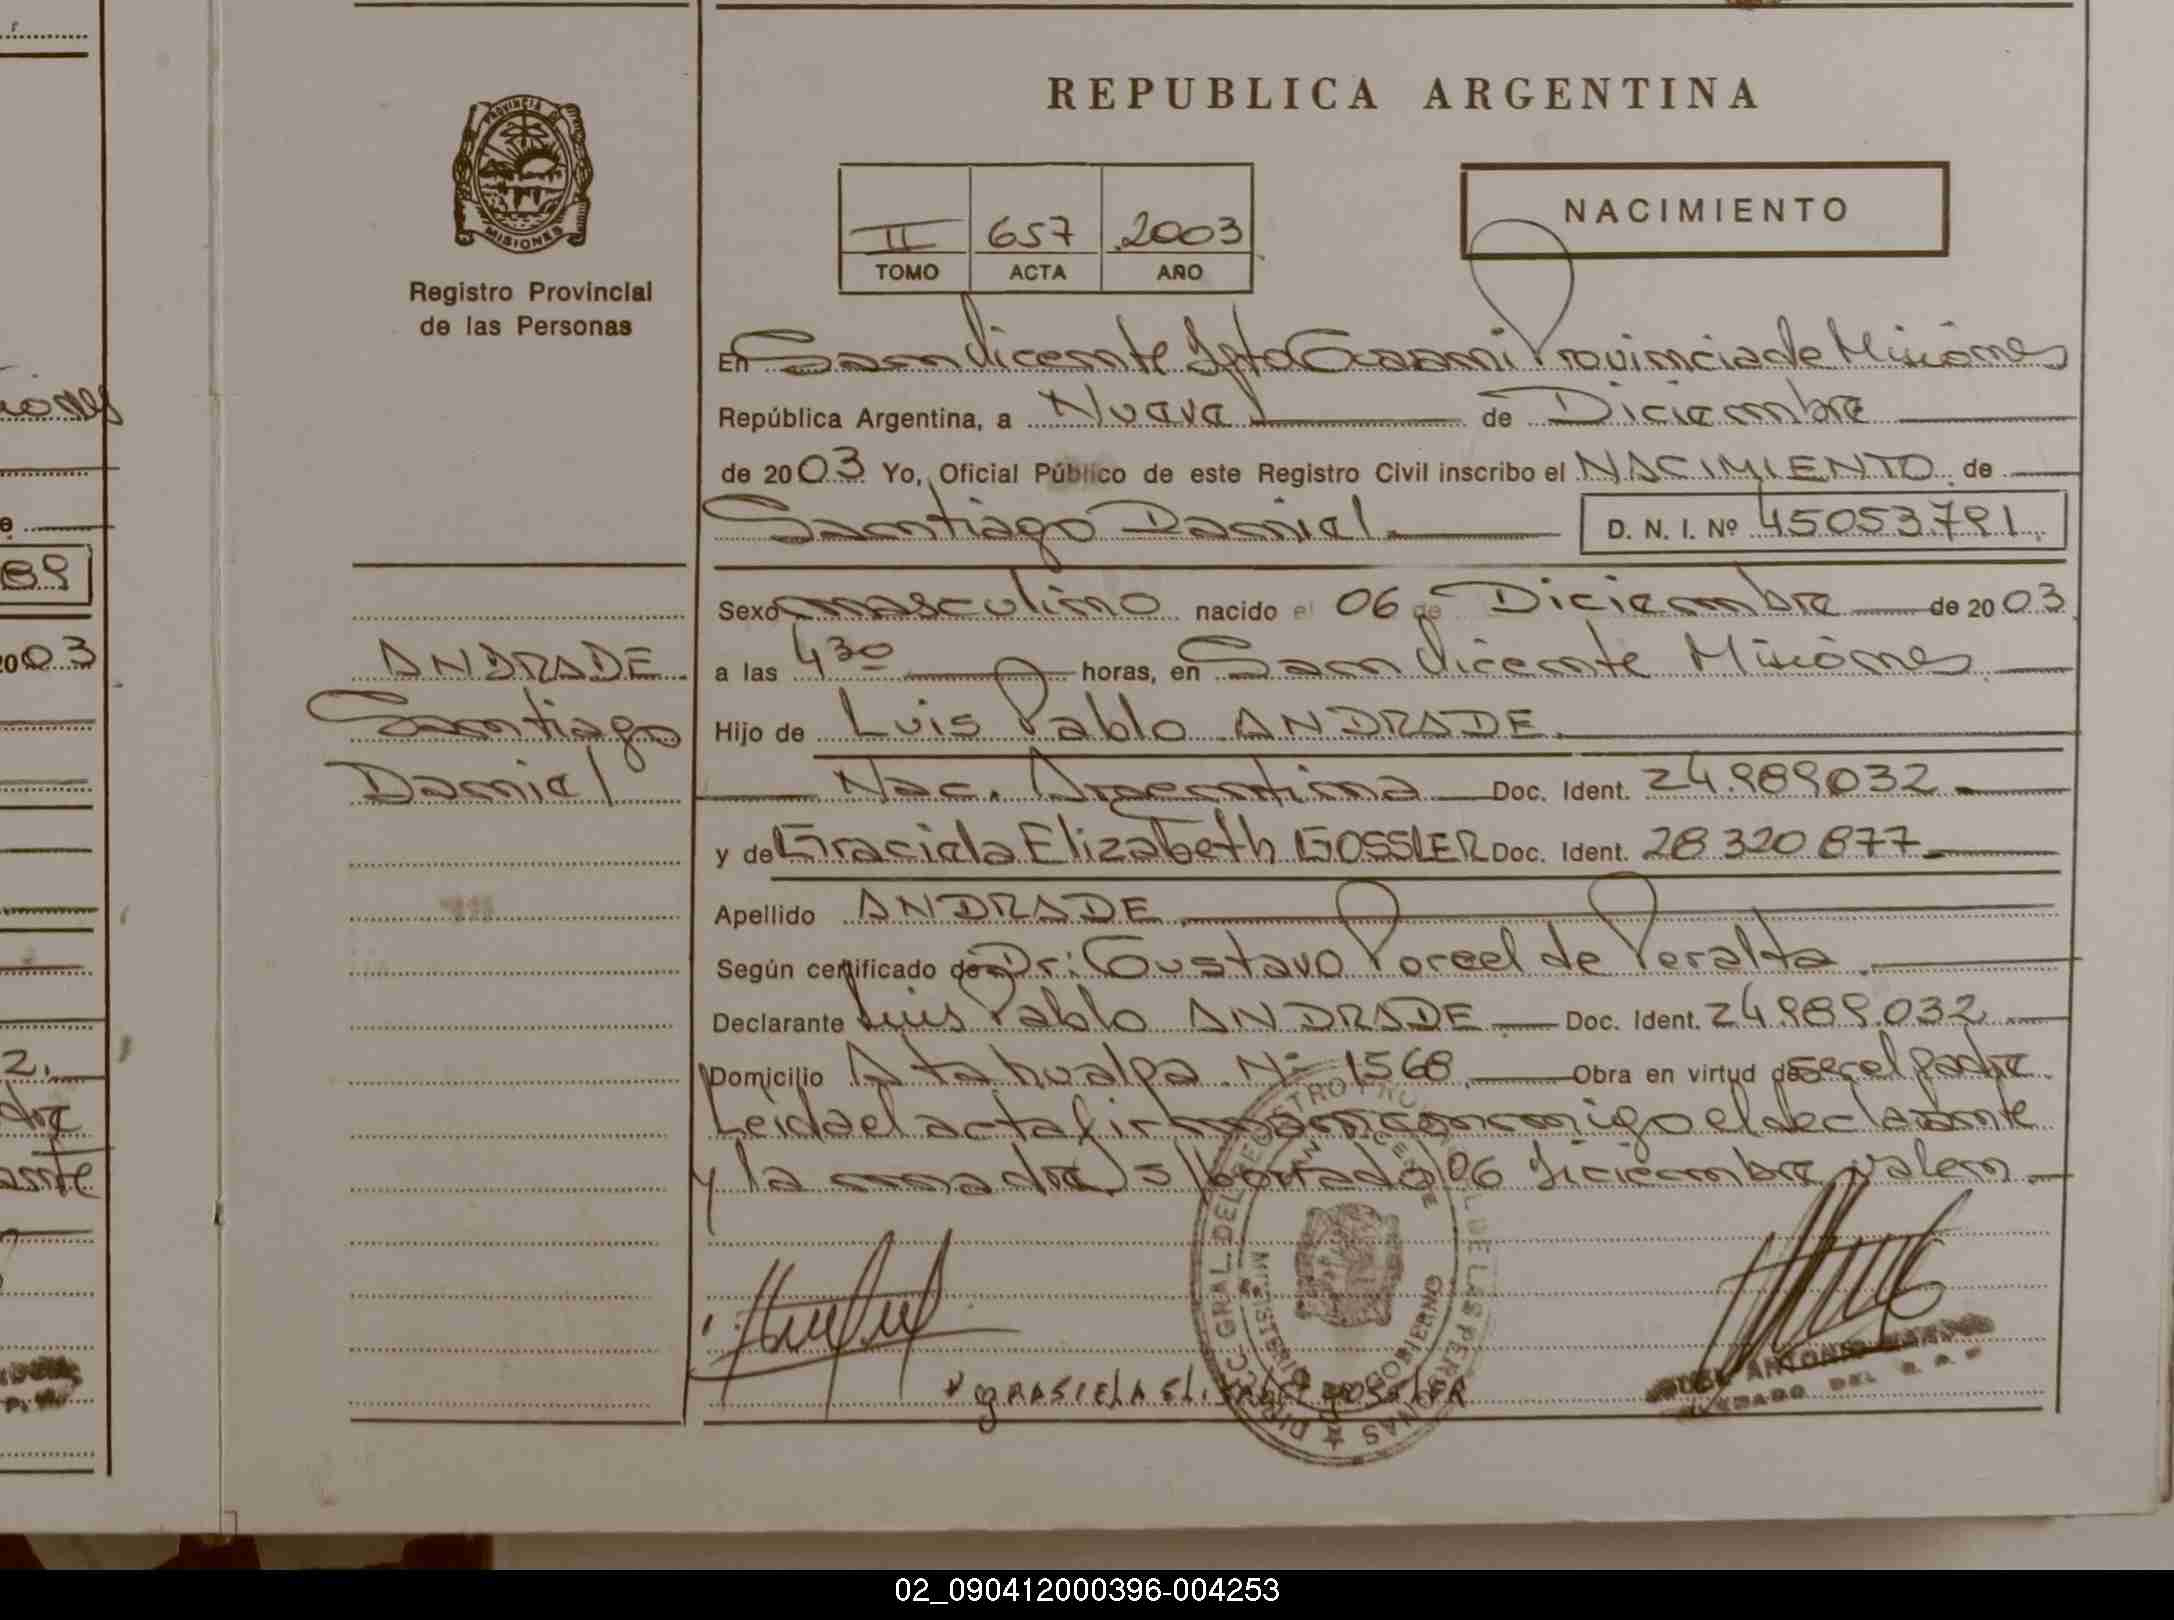 REPUBLICA ARGENTINA
PROVINCIA DE
MISIONES
Registro Provincial
de las Personas
II 657 2003
TOMO ACTA AÑO
NACIMIENTO
En San Vicente Dpto Guarani Provincia de Misiones
República Argentina, a Nueve de Diciembre
de 2003 Yo, Oficial Público de este Registro Civil inscribo el NACIMIENTO de
Santiago Daniel D. N. I. Nº 45053.791
Sexo masculino nacido el 06 de Diciembre de 2003
a las 4 30 horas, en San Vicente Misiones
Hijo de Luis Pablo ANDRADE
Nac. Argentina Doc. Ident. 24.989.032
y de Graciela Elizabeth GOSSLER Doc. Ident. 28 320 877
Apellido ANDRADE
Según certificado de Dr: Gustavo Porcel de Peralta
Declarante Luis Pablo ANDRADE Doc. Ident. 24.989.032
Domicilio Atahualpa Nº 1568 Obra en virtud de ser el padre
Leida el acta firman conmigo el declarante
y la madre S/borrado 06 Diciembre valen
ANDRADE
Santiago
Daniel
GRASIELA
DIRECC. GRAL. DEL REGISTRO PROVINCIAL DE LAS PERSONAS
MINISTERIO DE GOBIERNO
ANTONIO
DEL
89
2003
02_090412000396-004253